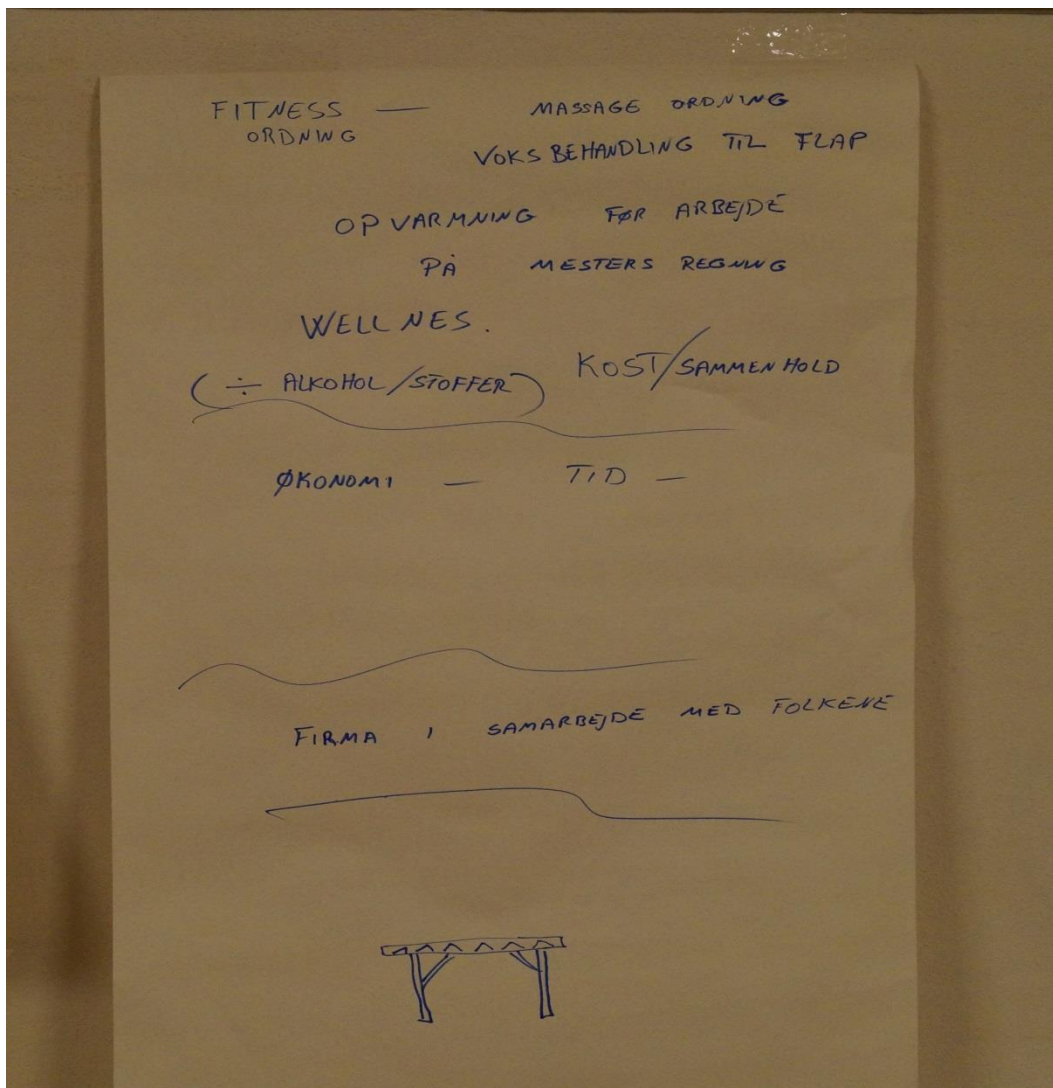 FITNESS — MASSAGE ORDNING
ORDNING
VOKSBEHANDLING TIL FLAP
OPVARMNING FØR ARBEJDE
PÅ MESTERS REGNING
WELLNES.
(÷ ALKOHOL/STOFFER) KOST/SAMMENHOLD
ØKONOMI — TID —
FIRMA I SAMARBEJDE MED FOLKENE